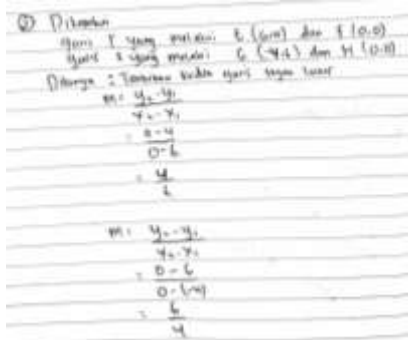 ② Diketahui
garis 1 yang melalui E (6,4) dan F (0,0)
garis 2 yang melalui G (-4,6) dan H (0,0)
Ditanya : kedua garis tegak lurus
m = y₂-y₁
x₂-x₁
= 0-4
0-6
= 4
6
m = y₂-y₁
x₂-x₁
= 0-6
0-(-4)
= 6
4